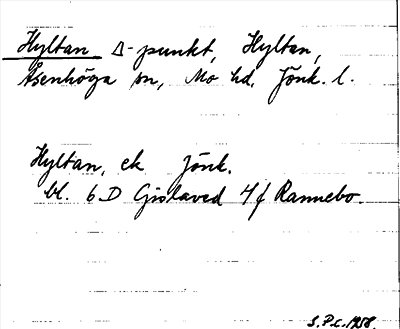 Hyltan Δ-punkt, Hyltan,
Åsenhöga sn, Mo hd. Jönk. l.
Hyltan, ek Jönk.
bl. 6 D Gislaved 4 f Rannebo.
S.P.C. 1958.